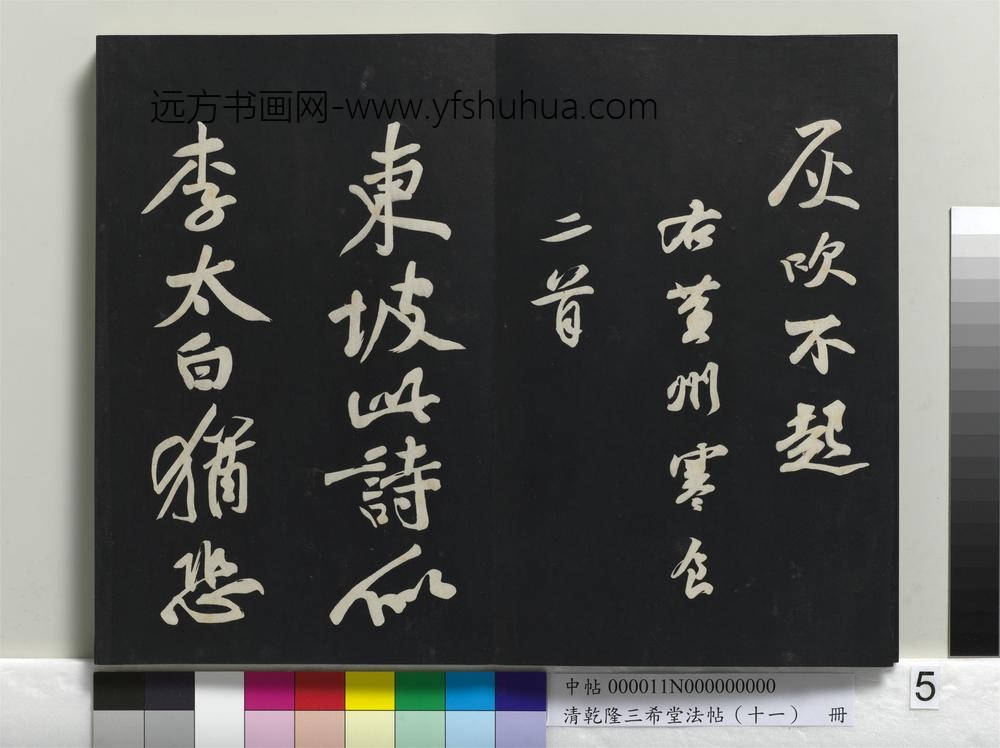 远方书画网-www.yfshuhua.com
灰吹不起
右黄州寒食
二首
東坡此詩似
李太白猶恐
中帖 000011N000000000
清乾隆三希堂法帖（十一） 冊
5